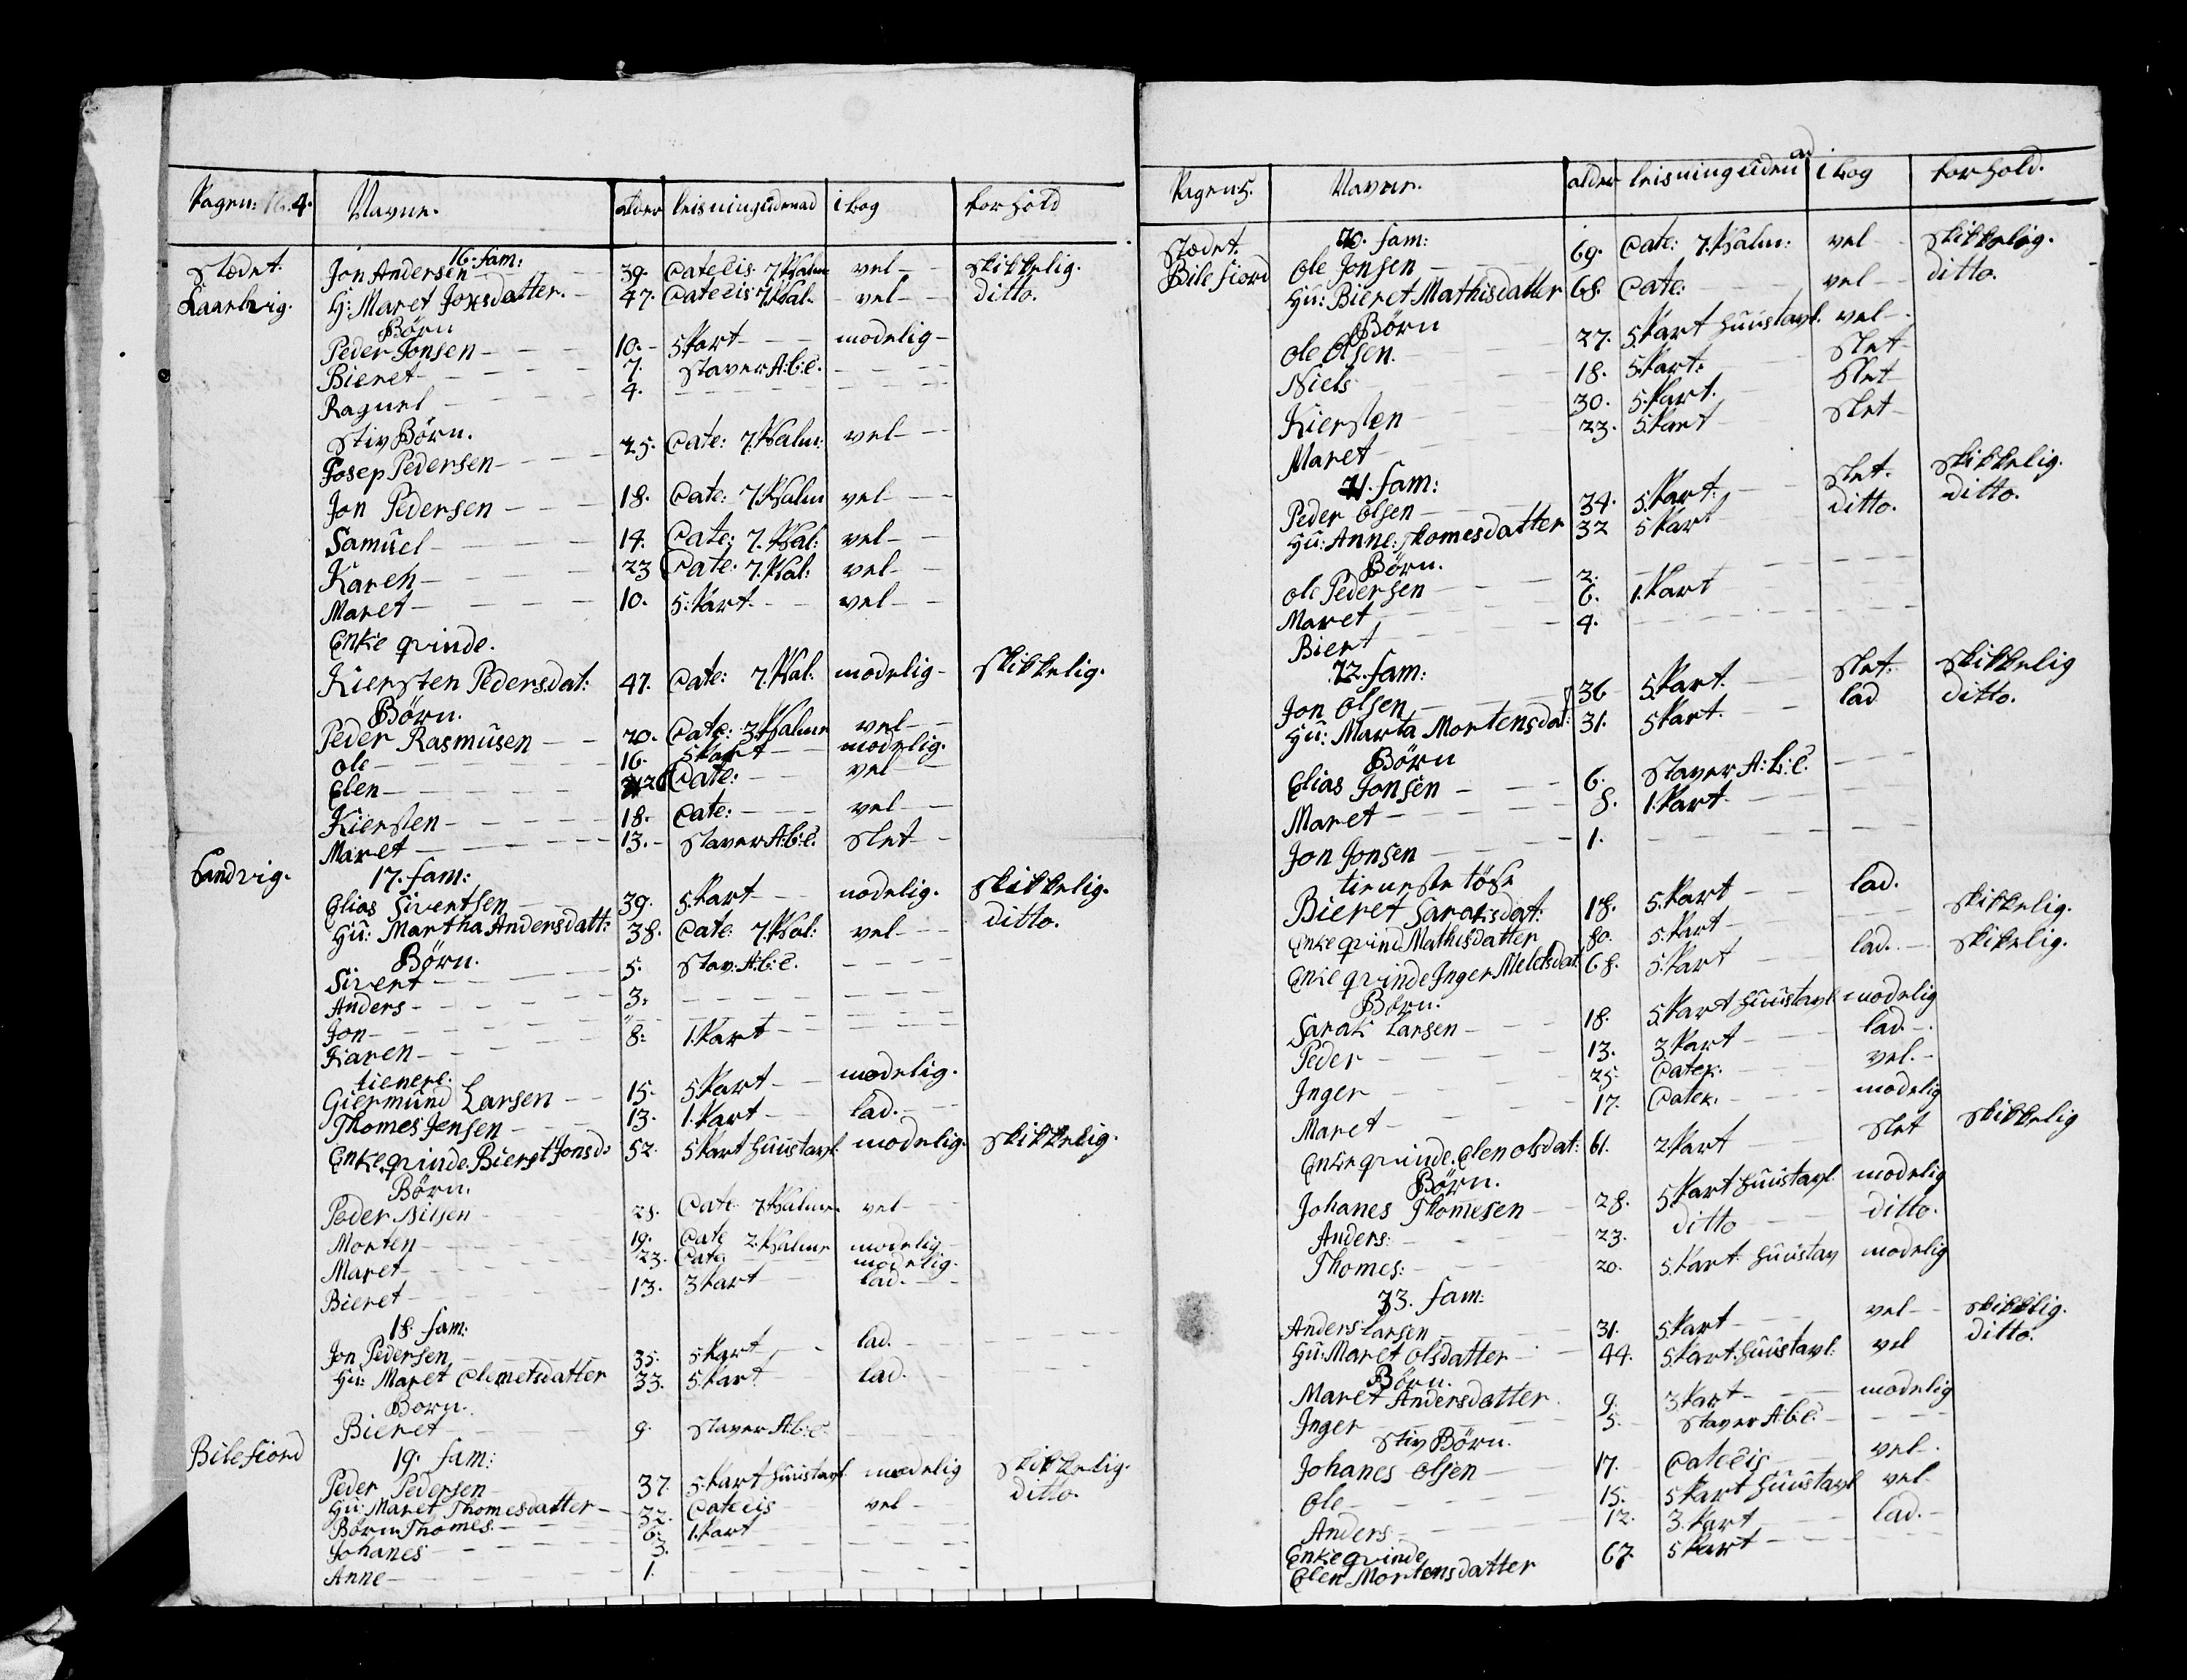 Pagen: 4. Navne. alder leisning udenad i bog forhold
Stædet. 16. fam:
Jon Andersen 39. Catecis 7. Psalm vel skikkelig.
Laarlvig. H: Maret Jonsdatter. 47. Catecis 7. Psal. vel ditto.
Börn
Peder Jonsen 10. 5. Part modelig
Bieret 7. staver A:b:c.
Ragnel 4.
Stiv Börn.
Josep Pedersen 25. Cate: 7. Psalm: vel
Jon Pedersen 18. Cate: 7. Psalm vel
Samuel 14. Cate: 7. Psal: vel
Karen 23 Cate: 7. Psal: vel
Maret 10. 5. Part vel
Enke qvinde.
Kiersten Pedersdat: 47. Cate: 7. Psal: modelig skikkelig.
Börn.
Peder Rasmusen 20. Cate: 3. Psalme vel
Ole 16. 5 Part modelig.
Elen 26 Cate: vel
Kiersten 18. Cate: vel
Maret 13. staver A:b:c. slet
Sandvig. 17. fam:
Elias Sivertsen 39. 5. Part modelig. skikkelig.
Hu: Martha Andersdatt: 38. Cate: 7. Psal: vel ditto.
Börn.
Sivert 5. Stav: A:b:c.
Anders 3.
Jon "
Karen 8. 1. Part
tienere.
Giermund Larsen 15. 5. Part modelig.
Thomes Jensen 13. 1. Part lad.
Enke qvinde. Bieret Jonsd: 52. 5 Part Huustavl. modelig. skikkelig.
Börn.
Peder Nilsen 28. Cate 7. Psalme vel
Morten 19. Cate 2. Psalme modelig
Maret 23. Cate modelig.
Bieret 13. 3 Part lad.
18. fam:
Jon Pedersen 35. 5. Part lad.
Hu: Maret Clemetsdatter 33. 5. Part lad.
Born.
Bieret 9. staver A:b:c
Bilefiord 19. fam:
Peder Pedersen 37. 5. Part Huustavl modelig skikkelig.
Hu: Maret Thomesdatter 32. Catecis vel ditto.
Börn Thomes. 6. 1. Part
Johanes 3.
Anne 1.
Pagen 5. Navne. alder leisning uden ad i bog forhold.
Stædet. 20. fam:
Bilefiord Ole Jonsen 69. Cate: 7. Psalm: vel skikkelig.
Hu: Bieret Mathisdatter 68. Cate: vel ditto.
Börn
Ole Olsen. 27. 5 Part Huustavl. vel
Niels 18. 5. Part. slet
Kiersten 30. 5. Part. slet
Maret 23. 5. Part slet
21. fam:
Peder Olsen 34. 5. Part. slet. skikkelig.
Hu: Anne: Thomesdatter 32 5 Part ditto. ditto.
Börn.
Ole Pedersen 2.
Maret 6. 1. Part
Biert 4.
22. fam:
Jon Olsen 36 5. Part. slet. skikkelig
Hu: Marta Mortensdat: 31. 5 Part. lad ditto.
Börn
Elias Jonsen 6. Staver A:b:c.
Maret 8. 1. Part.
Jon Jonsen 1.
tieneste töse
Bieret Saraksdat: 18. 5. Part lad.
Enke qvind Mathisdatter 80. 5. Part skikkelig.
Enke qvinde Inger Melchsdat 68. 5. Part lad. skikelig.
Börn:
Sarak Larsen 18. 5. Part Huustavl modelig
Peder 13. 3. Part lad.
Inger 25. Catek: vel.
Maret 17. Catek. modelig
Enke qvinde. Elen Olsdat: 61. 2. Part slet skikkelig
Börn.
Johanes Thomesen 28. 5 Part Huustavl modelig
Anders: 23. ditto ditto.
Thomes: 20. 5. Part. Huustav modelig
23. fam:
Anders Larsen 31. 5. Part vel skikkelig.
Hu: Maret Olsdatter 44. 5 Part. Huustavl: vel ditto.
Börn.
Maret Andersdatter. 9. 3. Part modelig
Inger 5. Staver A:b:c:
Stiv Börn.
Johanes Olsen 17. Catecis vel
Ole 15. 5 Part Huustavl vel
Anders 12. 3. Part lad.
Enke qvinde
Elen Mortensdatter 67. 5 Part